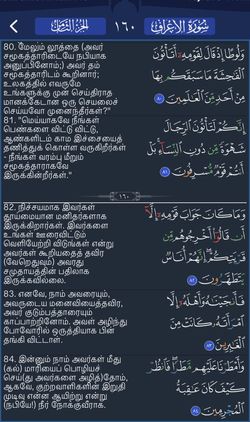 سُورَةُ الأَعْرَافِ
١٦٠
الجُزْءُ الثَّامِنُ
80. மேலும் லூத்தை (அவர்
சமூகத்தாரிடையே நபியாக
அனுப்பினோம்;) அவர் தம்
சமூகத்தாரிடம் கூறினார்;
உலகத்தில் எவருமே
உங்களுக்கு முன் செய்திராத
மானக்கேடான ஒரு செயலைச்
செய்யவோ முனைந்தீர்கள்?"
وَلُوطًا إِذْ قَالَ لِقَوْمِهِ أَتَأْتُونَ
الْفَاحِشَةَ مَا سَبَقَكُمْ بِهَا
مِنْ أَحَدٍ مِّنَ الْعَالَمِينَ ٨٠
81. "மெய்யாகவே நீங்கள்
பெண்களை விட்டு விட்டு,
ஆண்களிடம் காம இச்சையைத்
தணித்துக் கொள்ள வருகிறீர்கள்
- நீங்கள் வரம்பு மீறும்
சமூகத்தாராகவே
இருக்கின்றீர்கள்."
إِنَّكُمْ لَتَأْتُونَ الرِّجَالَ
شَهْوَةً مِّن دُونِ النِّسَاءِ بَلْ
أَنتُمْ قَوْمٌ مُّسْرِفُونَ ٨١
١٦٠
82. நிச்சயமாக இவர்கள்
தூய்மையான மனிதர்களாக
இருக்கிறார்கள். இவர்களை
உங்கள் ஊரைவிட்டும்
வெளியேற்றி விடுங்கள் என்று
அவர்கள் கூறியதைத் தவிர
(வேறெதுவும்) அவரது
சமுதாயத்தின் பதிலாக
இருக்கவில்லை.
وَمَا كَانَ جَوَابَ قَوْمِهِ إِلَّا
أَن قَالُوا أَخْرِجُوهُم مِّن
قَرْيَتِكُمْ إِنَّهُمْ أُنَاسٌ
يَتَطَهَّرُونَ ٨٢
83. எனவே, நாம் அவரையும்,
அவருடைய மனைவியைத்தவிர,
அவர் குடும்பத்தாரையும்
காப்பாற்றினோம். அவள் அழிந்து
போவோரில் ஒருத்தியாக பின்
தங்கி விட்டாள்.
فَأَنجَيْنَاهُ وَأَهْلَهُ إِلَّا
امْرَأَتَهُ كَانَتْ مِنَ
الْغَابِرِينَ ٨٣
84. இன்னும் நாம் அவர்கள் மீது
(கல்) மாரியைப் பொழியச்
செய்(து அவர்களை அழித்)தோம்,
ஆகவே, குற்றவாளிகளின் இறுதி
முடிவு என்ன ஆயிற்று என்று
(நபியே!) நீர் நோக்குவீராக.
وَأَمْطَرْنَا عَلَيْهِم مَّطَرًا فَانظُرْ
كَيْفَ كَانَ عَاقِبَةُ
الْمُجْرِمِينَ ٨٤